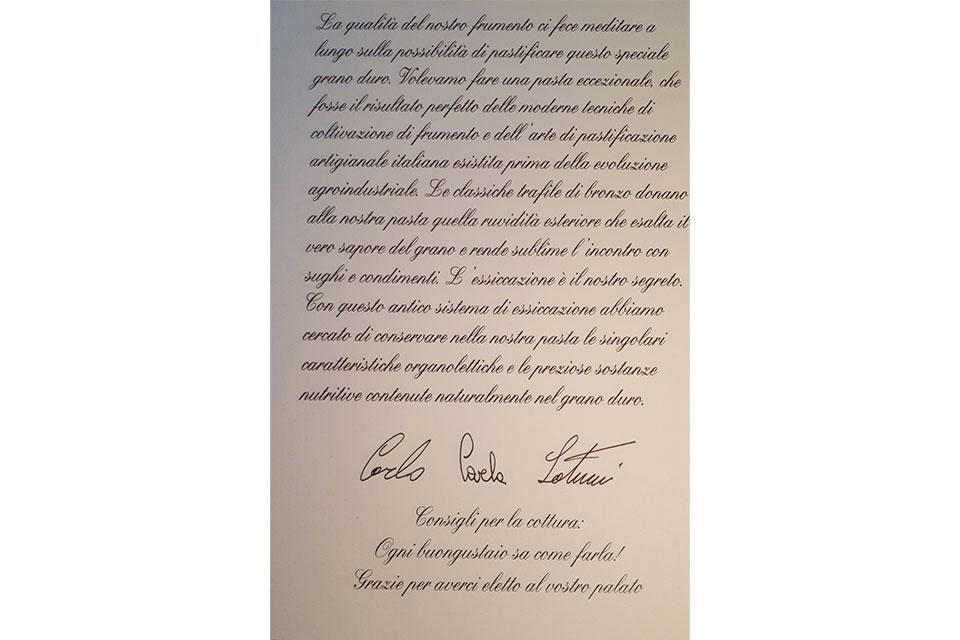 La qualità del nostro frumento ci fece meditare a
lungo sulla possibilità di pastificare questo speciale
grano duro. Volevamo fare una pasta eccezionale, che
fosse il risultato perfetto delle moderne tecniche di
coltivazione di frumento e dell'arte di pastificazione
artigianale italiana esistita prima della evoluzione
agroindustriale. Le classiche trafile di bronzo donano
alla nostra pasta quella ruvidità esteriore che esalta il
vero sapore del grano e rende sublime l'incontro con
sughi e condimenti. L'essiccazione è il nostro segreto.
Con questo antico sistema di essiccazione abbiamo
cercato di conservare nella nostra pasta le singolari
caratteristiche organolettiche e le preziose sostanze
nutritive contenute naturalmente nel grano duro.
Carlo Carla Latini
Consigli per la cottura:
Ogni buongustaio sa come farla!
Grazie per averci eletto al vostro palato